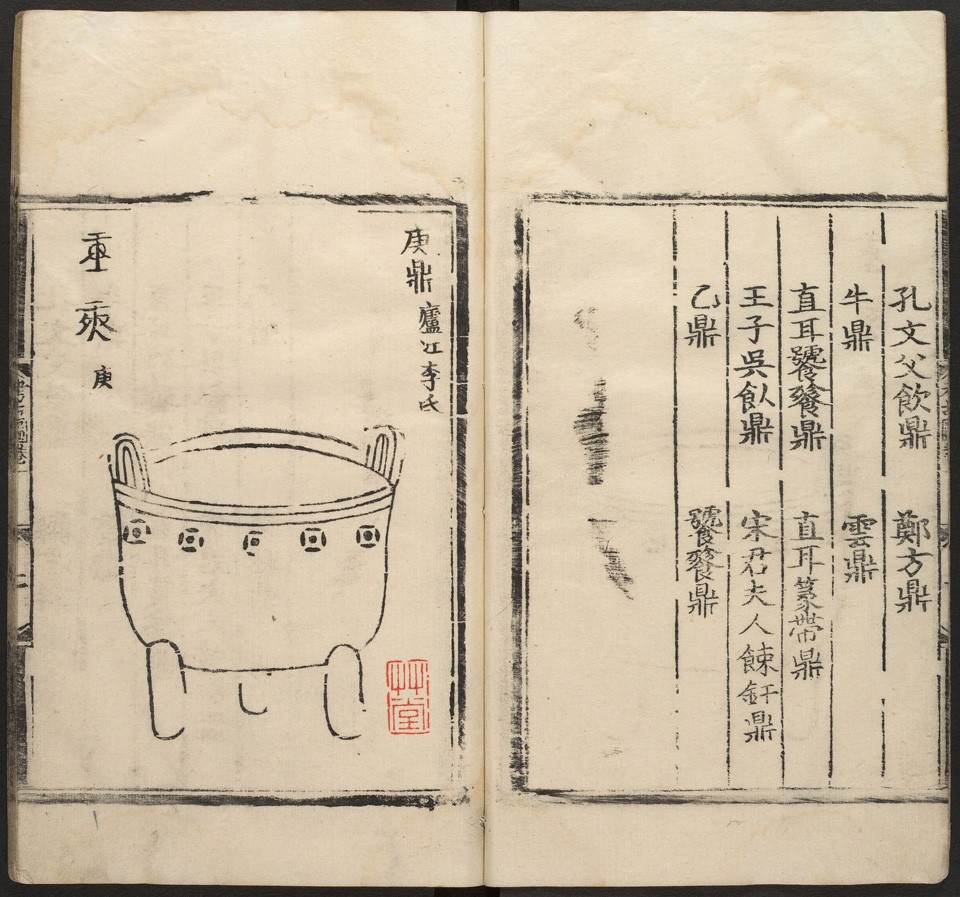 孔文父飲鼎 鄭方鼎
牛鼎 雲鼎
直耳饕餮鼎 直耳篆帶鼎
王子吳飤鼎 宋君夫人餗釬鼎
乙鼎 饕餮鼎
庚鼎 廬江李氏
庚
艸堂